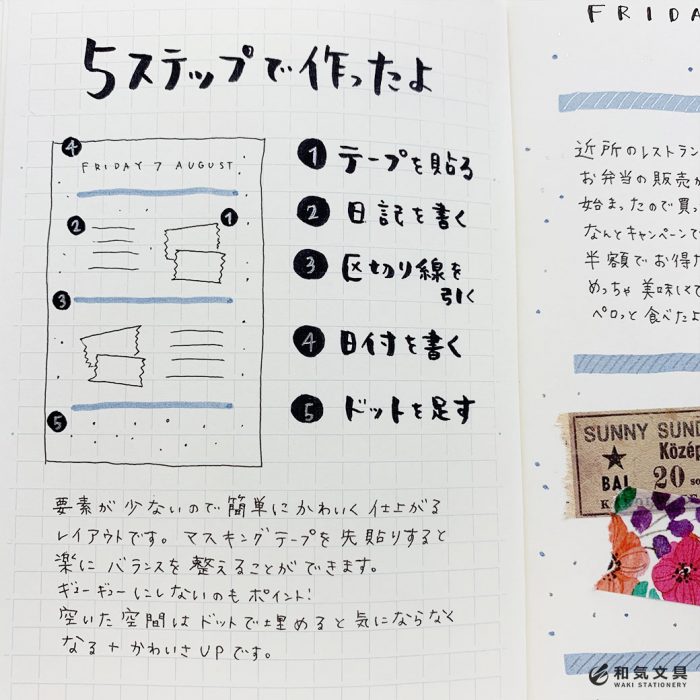 5ステップで作ったよ
4
FRIDAY 7 AUGUST
2
1
3
5
1 テープを貼る
2 日記を書く
3 区切り線を
引く
4 日付を書く
5 ドットを足す
要素が少ないので簡単にかわいく仕上がる
レイアウトです。マスキングテープを先貼りすると
楽にバランスを整えることができます。
ギューギューにしないのもポイント!
空いた空間はドットで埋めると気にならなく
なる+かわいさUPです。
FRIDA
近所のレストラン
お弁当の販売が
始まったので買っ
なんとキャンペーンで
半額でお得だ
めっちゃ美味しくて
ペロッと食べたよ
SUNNY SUND
Közép
BAL 20 so
K
和気文具
WAKI STATIONERY